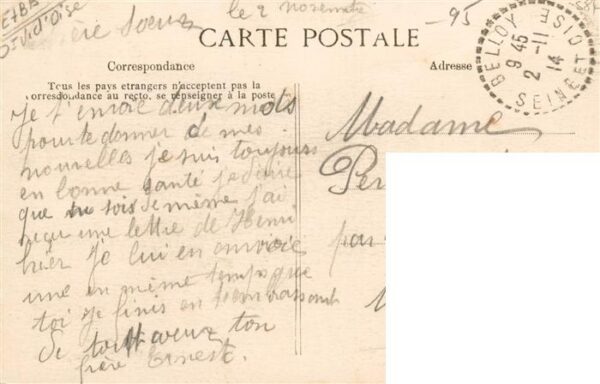 le 2 novembre
-95
ère Soeur
CARTE POSTALE
Correspondance
Adresse
Tous les pays étrangers n'acceptent pas la
correspondance au recto, se renseigner à la poste
BELLOY
9 45
2 -11
14
SEINE ET OISE
Je t'envoie deux mots
pour te donner de mes
nouvelles je suis toujours
en bonne santé je désire
que tu sois de même j'ai
reçu une lettre de Henri
hier je lui en envoie
une en même temps que
toi je finis en t'embrassant
de tout coeur ton
frère Ernest.
Madame
Per
par